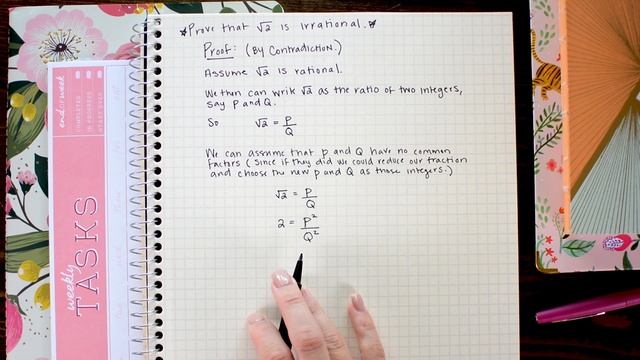 *Prove that √2 is irrational.*
Proof: (By Contradiction.)
Assume √2 is rational.
We then can write √2 as the ratio of two integers,
say P and Q.
So √2 = P/Q
We can assume that P and Q have no common
factors (since if they did we could reduce our fraction
and choose the new P and Q as those integers.)
√2 = P/Q
2 = P²/Q²
weekly
TASKS
end of week
COMPLETED
IN PROGRESS